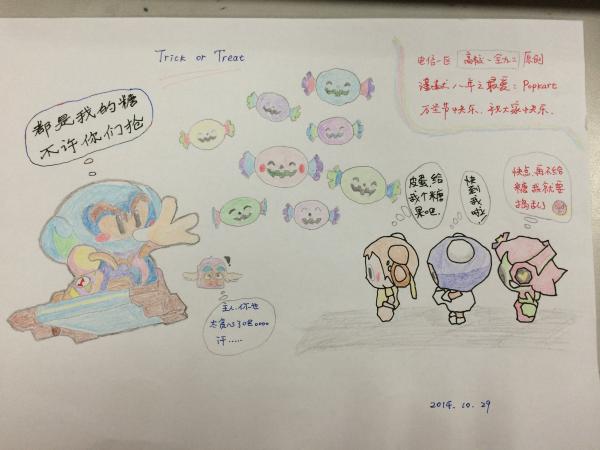 Trick or Treat
电信一区
原创
谨献八年之最爱：Popkart
万圣节快乐、祝大家快乐.
都是我的糖
不许你们抢
皮蛋,给
我个糖
果吧.
快
到我
啦
快点,再不给
糖我就要
捣乱
主人,你也
太贪心了吧。。。。
汗......
2014.10.29